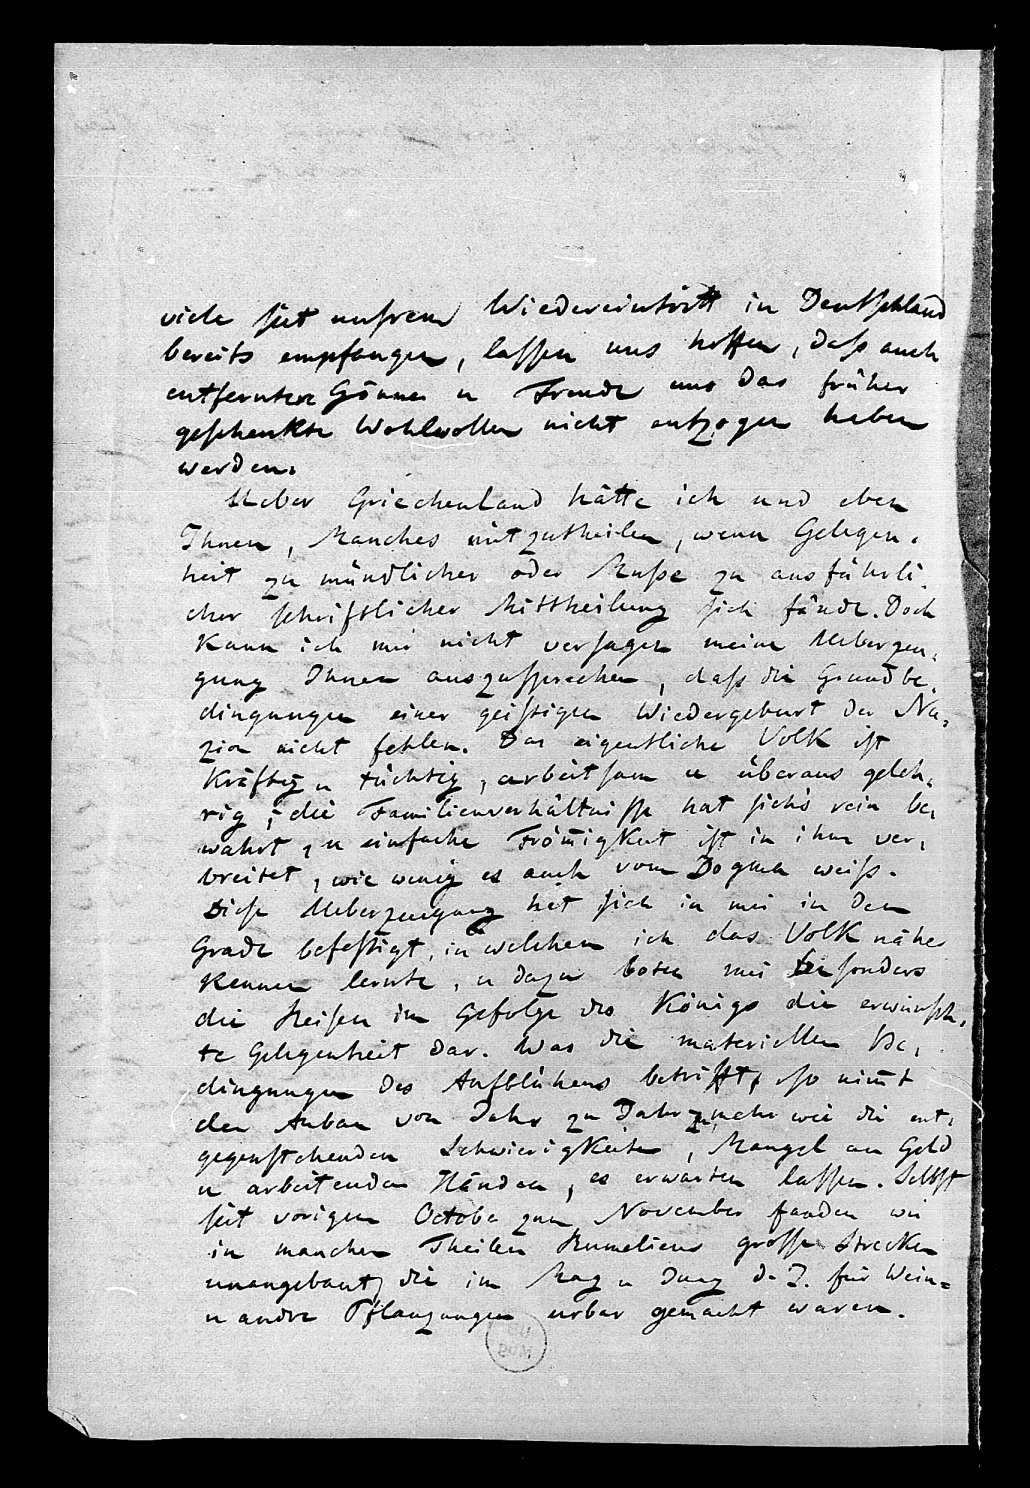 viele seit unsrem Wiedereintritt in Deutschland
bereits empfangen, lassen uns hoffen, daß auch
entferntere Gönner u Freunde uns das früher
geschenkte Wohlwollen nicht entzogen haben
werden.
Ueber Griechenland hätte ich und eben
Ihnen, Manches mitzutheilen, wenn Gelegen-
heit zu mündlicher oder Muße zu ausführli-
cher schriftlicher Mittheilung sich fände. Doch
kann ich mir nicht versagen meine Ueberzeu-
gung Ihnen auszusprechen, daß die Grundbe-
dingungen einer geistigen Wiedergeburt der Na-
zion nicht fehlen. Das eigentliche Volk ist
kräftig u tüchtig, arbeitsam u überaus geleh-
rig; die Familienverhältnisse hat sichs rein be-
wahrt, u einfache Frömigkeit ist in ihm ver-
breitet, wie wenig es auch vom Dogma weiß.
Diese Ueberzeugung hat sich in mir in dem
Grade befestigt, in welchem ich das Volk näher
kennen lernte, u dazu boten mir besonders
die Reisen im Gefolge des Königs die erwünsch-
te Gelegenheit dar. Was die materiellen Be-
dingungen des Aufblühens betrifft, so nimt
der Anbau von Jahr zu Jahr zu, mehr wie die ent-
gegenstehenden Schwierigkeiten, Mangel an Geld
u arbeitenden Händen, es erwarten lassen. Selbst
seit vorigem October zum November fanden wir
in manchen Theilen Rumeliens große Strecken
unangebaut, die im May u Juny d. J. für Wein-
u andre Pflanzungen urbar gemacht waren.